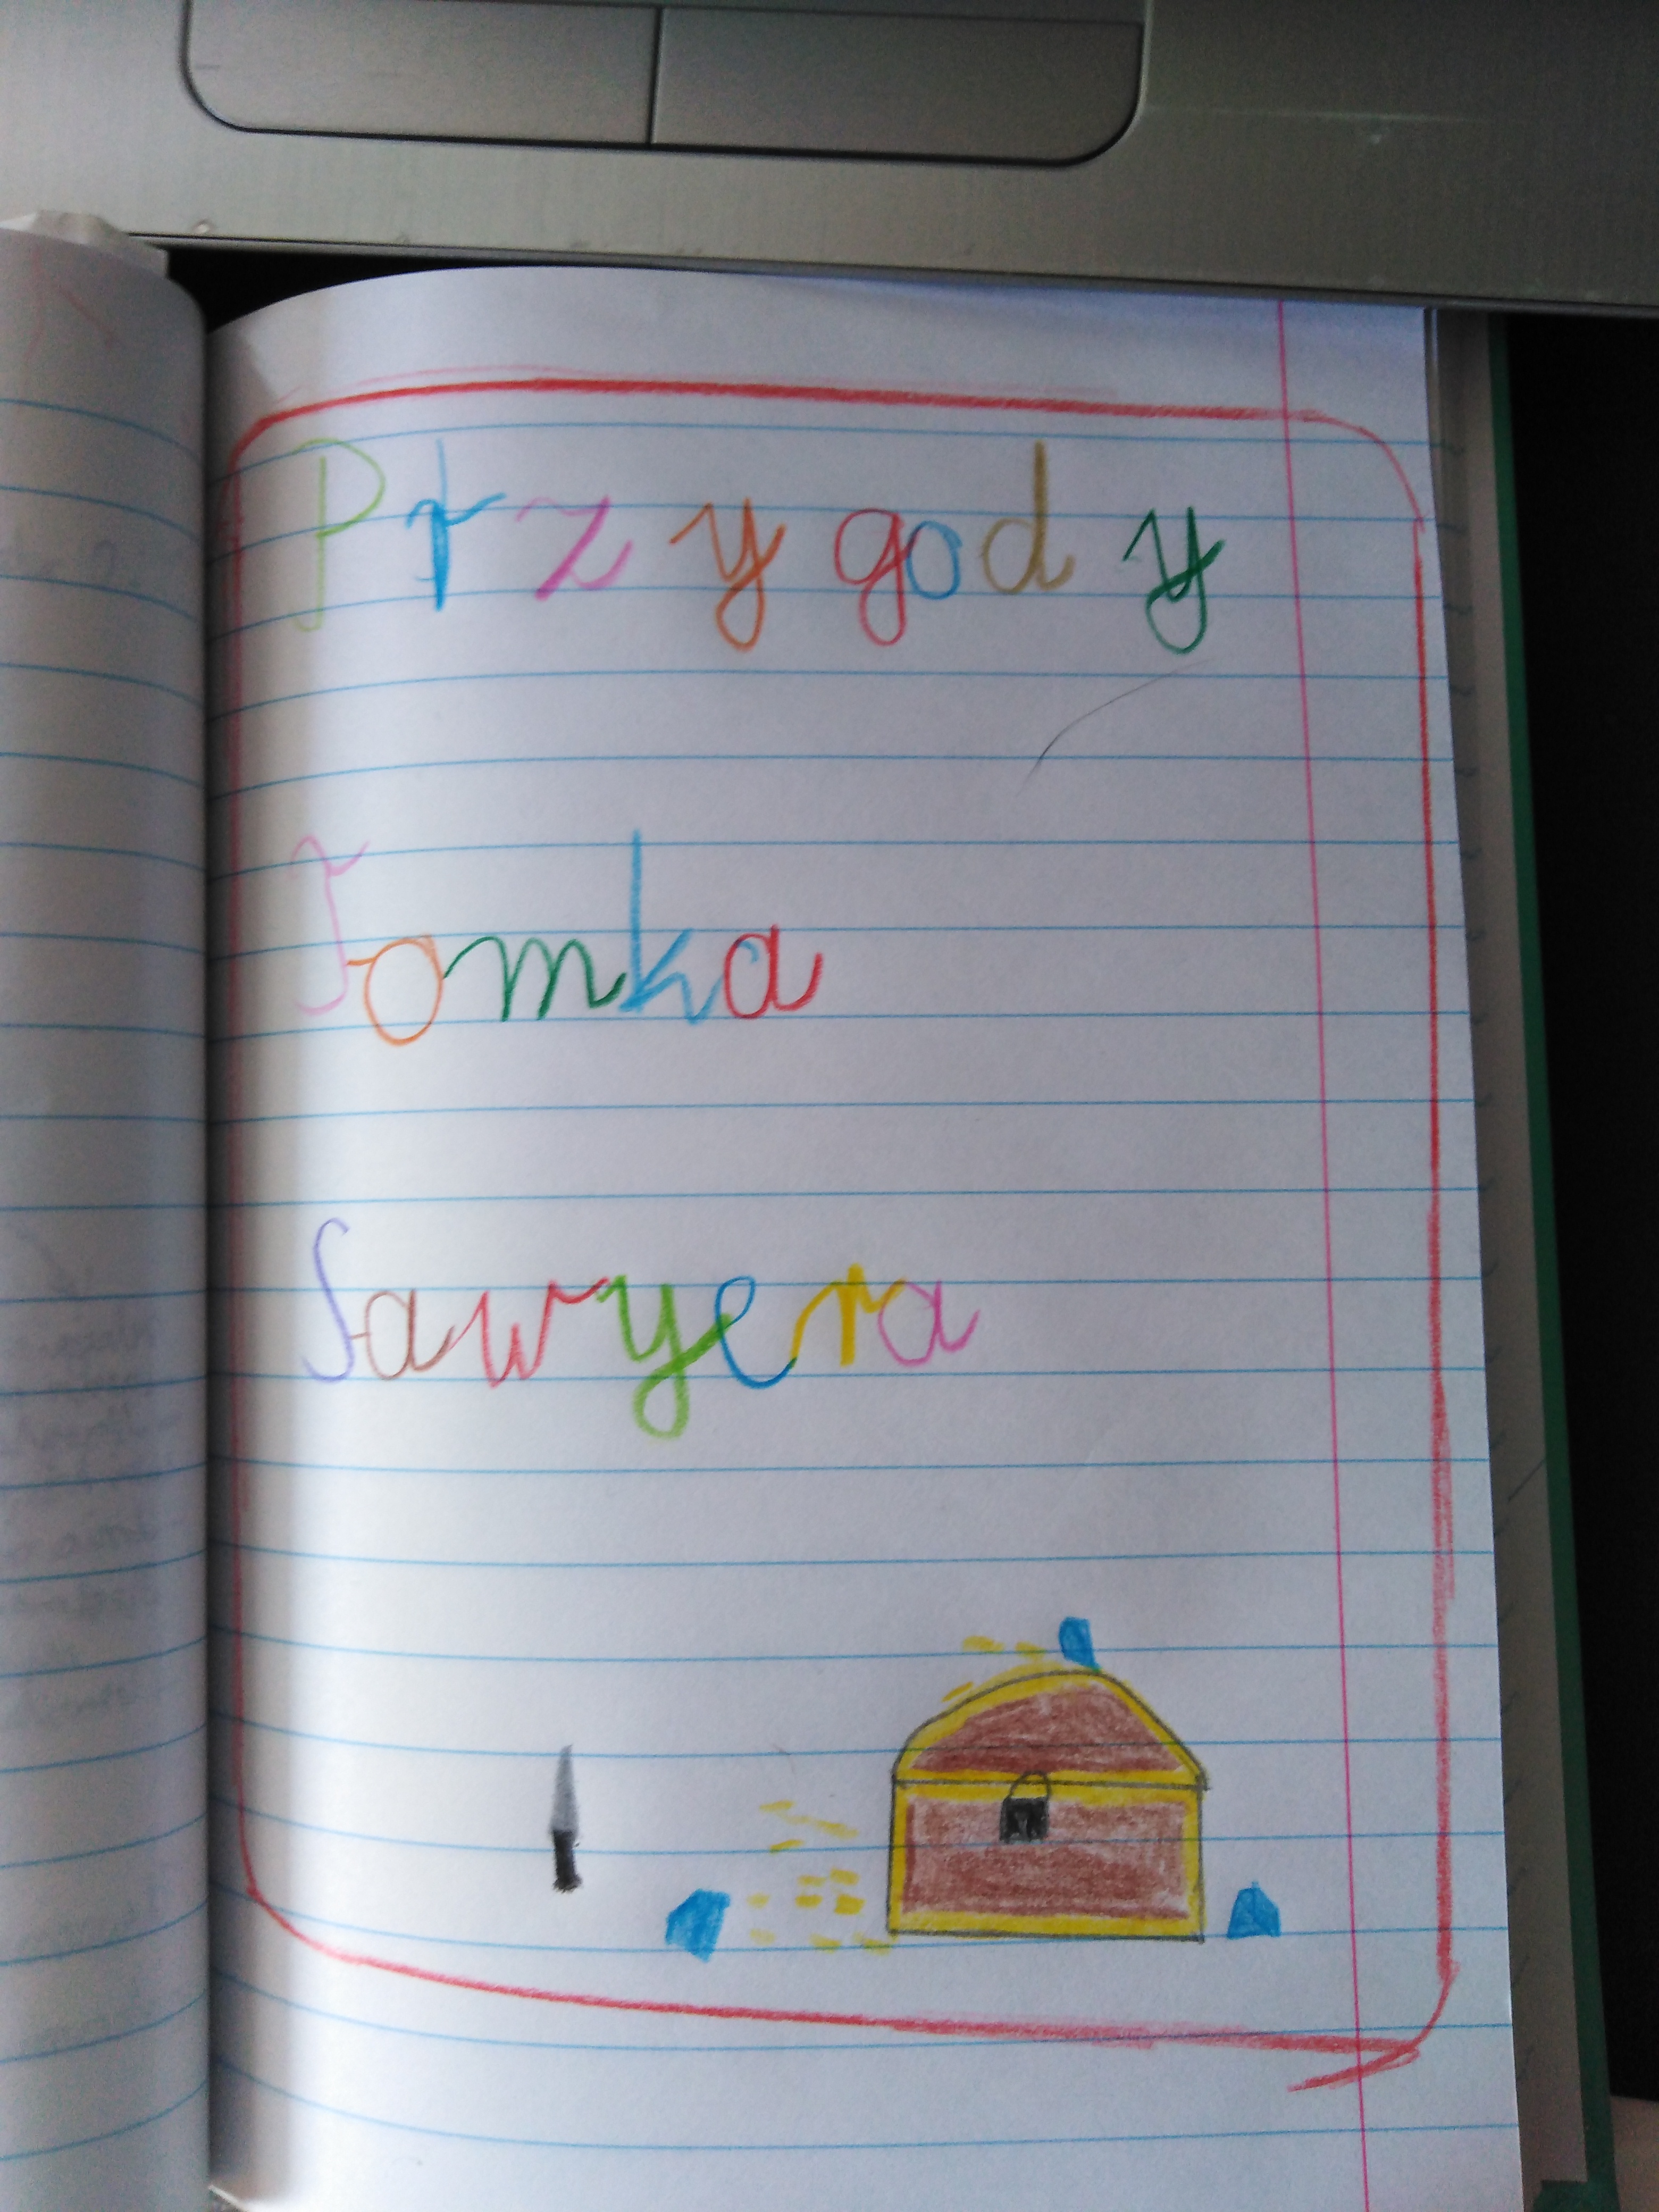 Przygody
Tomka
Sawyera